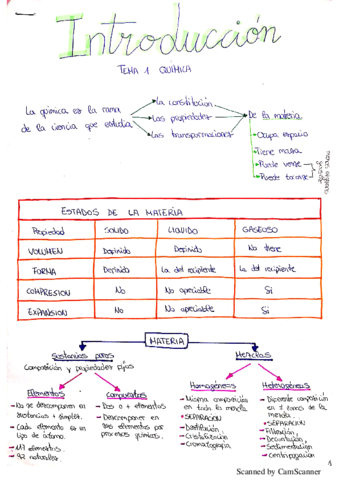 Introducción
TEMA 1 QUÍMICA
La química es la rama
de la ciencia que estudia
La constitución
Las propiedades
Las transformaciones
De la materia
Ocupa espacio
Tiene masa
Puede verse
Puede tocarse
ESTADOS DE LA MATERIA
Propiedad SOLIDO LIQUIDO GASEOSO
VOLUMEN Definido Definido No tiene
FORMA Definida La del recipiente La del recipiente
COMPRESION No No apreciable Si
EXPANSION No No apreciable Si
MATERIA
Sustancias puras
Composición y propiedades fijas
Elementos
- No se descomponen en
sustancias + simples.
- Cada elemento es un
tipo de átomo.
- 117 elementos
- 92 naturales.
Compuestos
- Dos o + elementos
- Descomponen en
sus elementos por
procesos químicos.
Mezclas
Homogéneas
- Misma composición
en toda la mezcla
* SEPARACION
- Destilación
- Cristalización
- Cromatografía
Heterogéneas
- Diferente composición
en la mezcla
* SEPARACION
- Filtración,
- Decantación,
- Sedimentación
- Centrifugación
1
Scanned by CamScanner